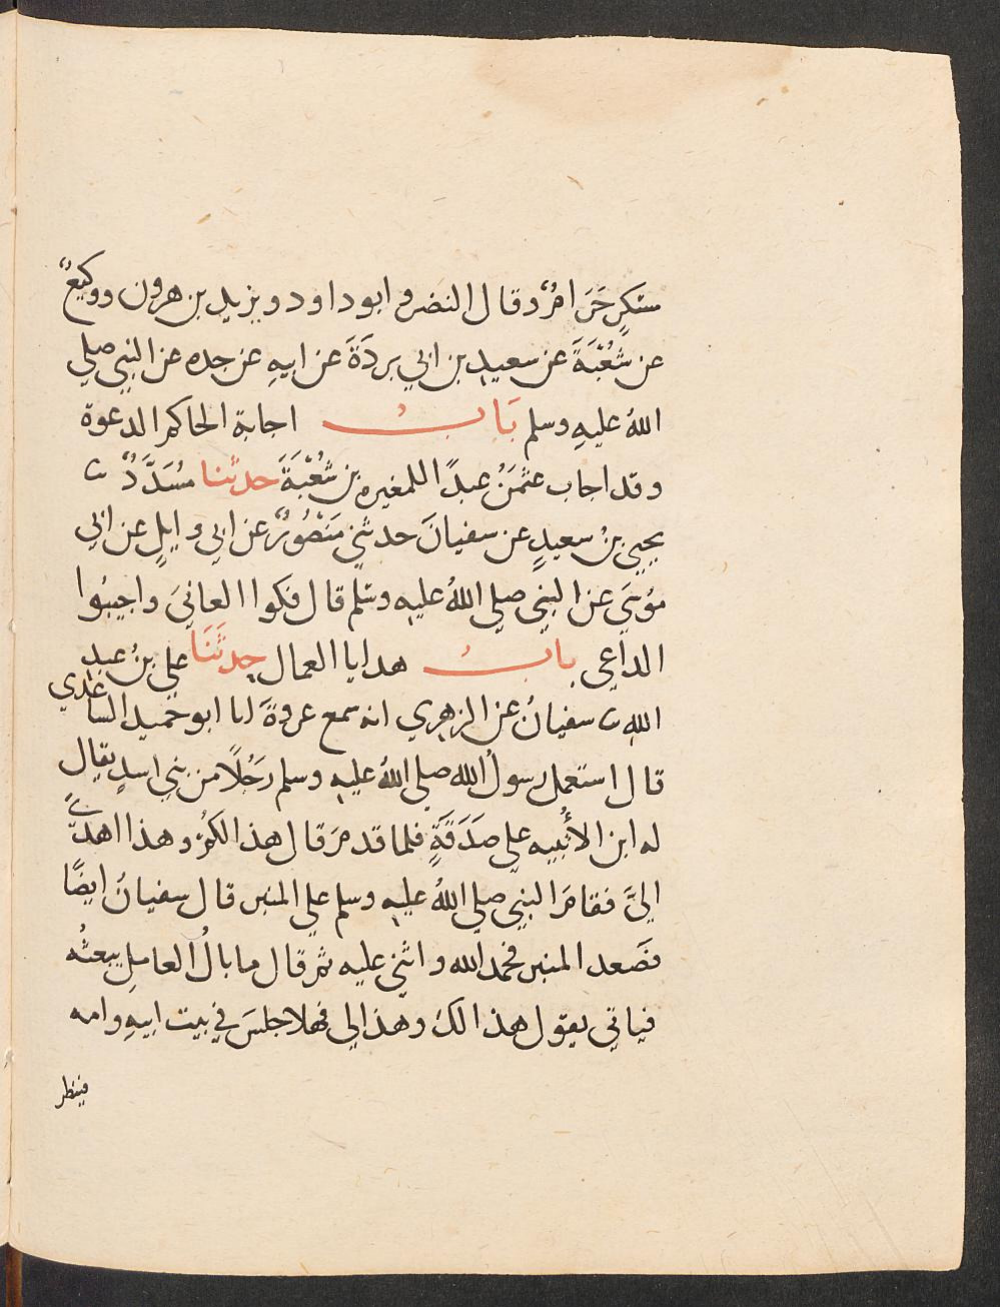 مسْكِرٍ حَرَامٌ وقال النضر وابوداود ويزيد بن هرون ووكيعٌ
عن شُعْبَةَ عن سعيد بن ابي بردَةَ عن ابيهِ عن جده عن النبي صلي
اللهُ عليهِ وسلم بَابُ اجابة الحاكم الدعوة
وقد اجاب عثمَنُ عبدًا للمغيره بن شُعْبَةَ حدثنا مُسَدَّدٌ ثنا
يحيي بنُ سعيدٍ عن سفيانَ حدثني مَنْصُورٌ عن ابي وايلٍ عن ابي
موُسَي عن النبي صلي اللهُ عليه وسَلم قال فكوا العانيَ واجيبُوا
الداعي بابُ هدايا العمال حدثَنَا علي بنُ عبد
الله ثنا سفيانُ عن الزهري انه سمع عروةَ انا ابو حميد الساعدي
قال استعمل رسولُ الله صلي اللهُ عليه وسلم رَجُلًا من بني اسدٍ يقال
له ابن الأُتْبيه علي صَدَقَةٍ فلما قدمَ قال هذا لكمُ وهذا اهدي
اليَّ فقامَ النبي صلي اللهُ عليه وسلم علي المنبر قال سفيانُ ايضًا
فصَعد المنبر فحمد الله واثني عليه ثم قال ما بالُ العاملِ يبعثُه
فياتي يقول هذا لك وهذا لي فهلا جلسَ في بيت ابيهِ وامه
فينظر